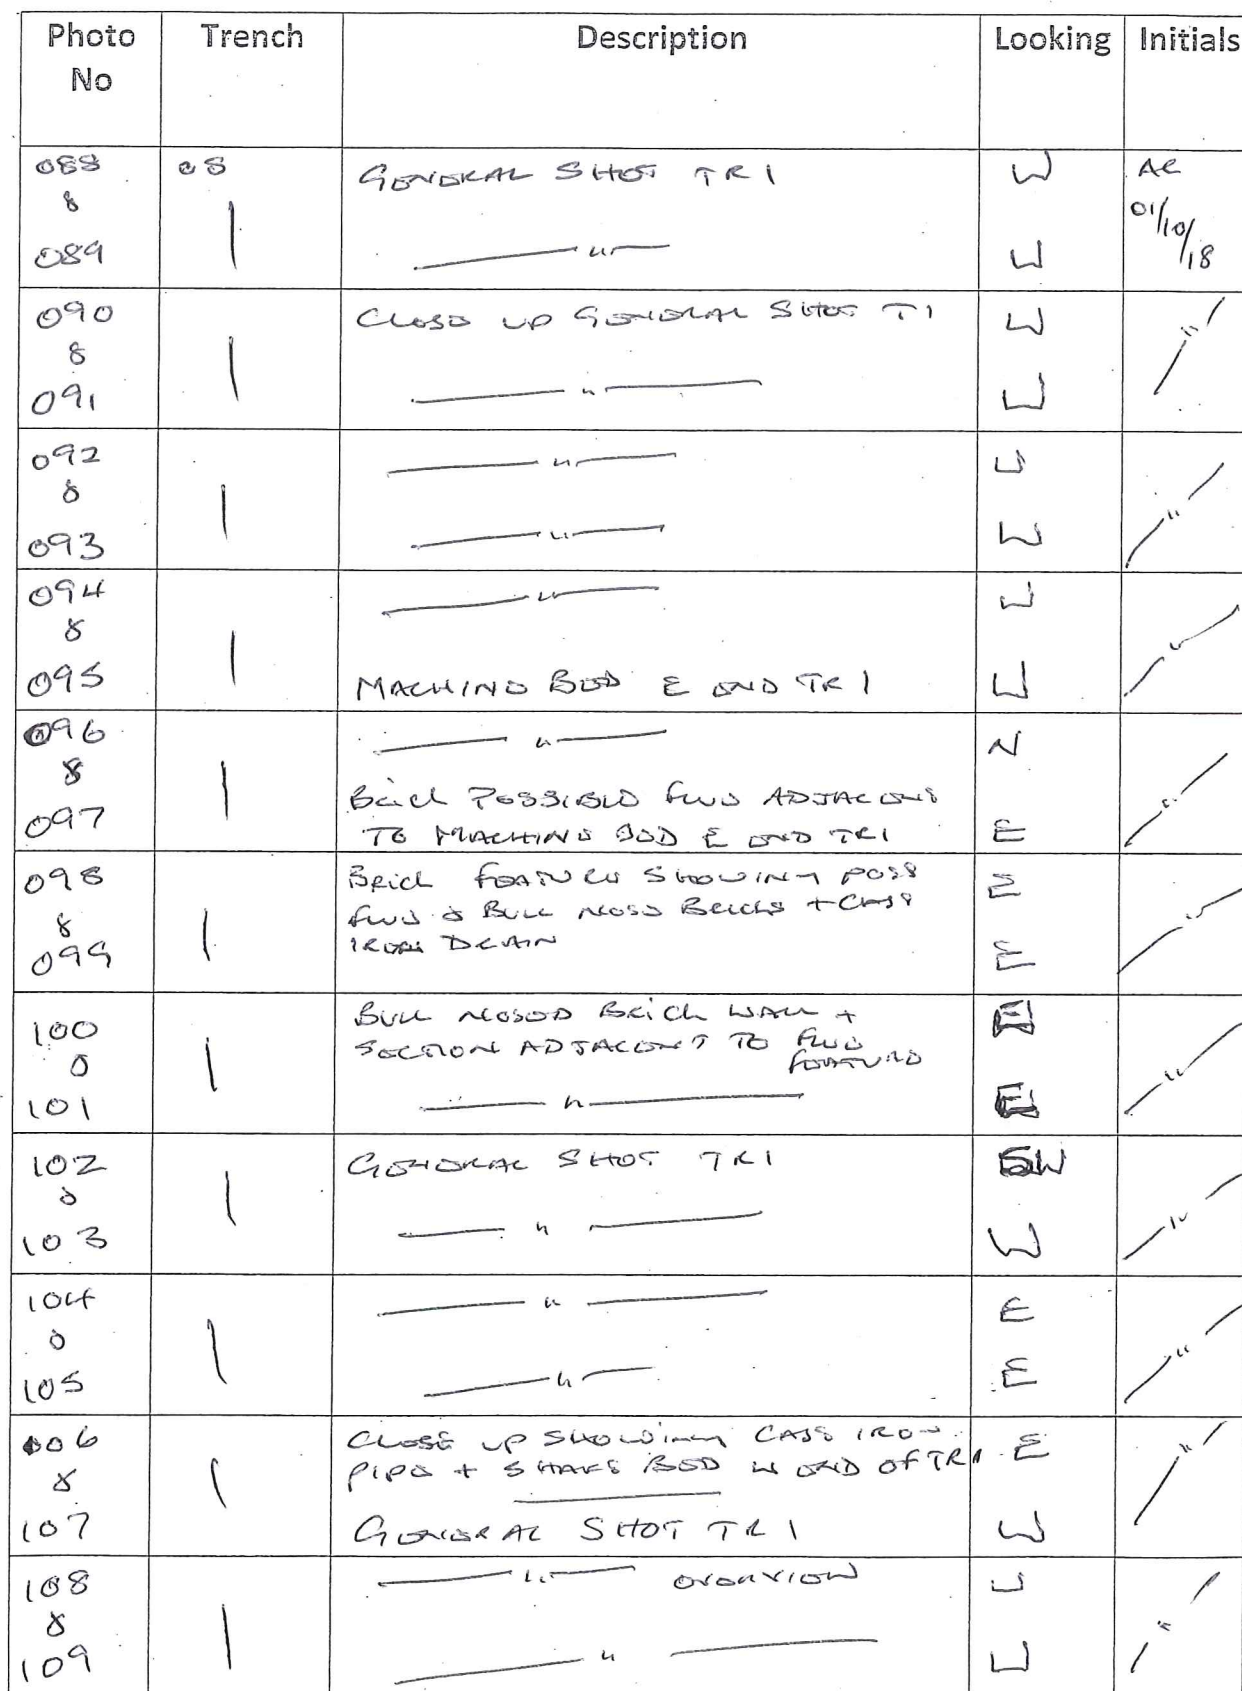 Photo No Trench Description Looking Initials
088 08 GENERAL SHOT TR 1 W AR
& 1 01/10/18
089 —— " —— W
090 CLOSE UP GENERAL SHOT T1 W — " —
& 1
091 —— " —— W
092 —— " —— W — " —
& 1
093 —— " —— W
094 —— " —— W — " —
& 1
095 MACHINE BED E END TR 1 W
096 —— " —— N — " —
& 1 BRICK POSSIBLE FLUE ADJACENT
097 TO MACHINE BED E END TR1 E
098 BRICK FEATURE SHOWING POSS E — " —
& 1 FLUE & BULL NOSE BRICKS + CAST
099 IRON DRAIN E
100 BULL NOSED BRICK WALL + E — " —
& 1 SECTION ADJACENT TO FLUE
FEATURE
101 —— " —— E
102 GENERAL SHOT TR1 SW — " —
& 1
103 —— " —— W
104 —— " —— E — " —
& 1
105 —— " —— E
106 CLOSE UP SHOWING CAST IRON E — " —
& 1 PIPE + SHAFT BED W END OF TR1
107 GENERAL SHOT TR 1 W
108 —— " —— OVERVIEW W — " —
& 1
109 —— " —— W